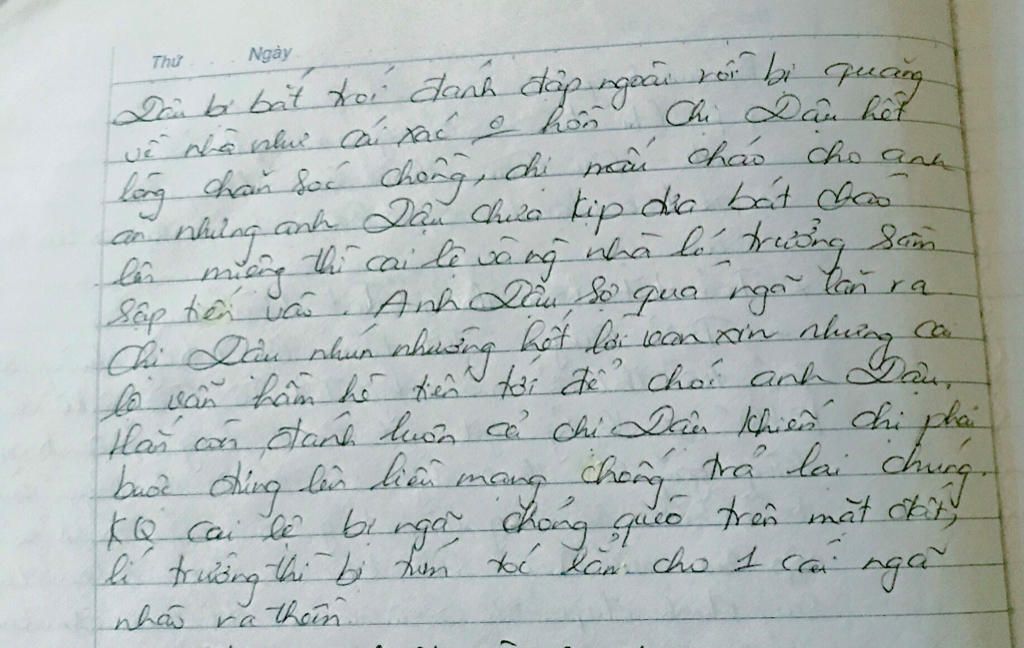 Thứ Ngày
Dậu bị bắt trói đánh đập ngoài rồi bị quăng
về nhà như cái xác 0 hồn. Chị Dậu hết
lòng chăm sóc chồng, chị nấu cháo cho anh
ăn nhưng anh Dậu chưa kịp đưa bát cháo
lên miệng thì cai lệ và ng nhà lí trưởng sầm
sập tiến vào. Anh Dậu sợ quá ngã lăn ra
Chị Dậu nhún nhường hết lời van xin nhưng cai
lệ vẫn hầm hè tiến tới để chói anh Dậu.
Hắn còn đánh luôn cả chị Dậu khiến chị phải
buộc đứng lên liều mạng chống trả lại chúng.
KQ cai lệ bị ngã chỏng quèo trên mặt đất,
lí trưởng thì bị túm tóc lẳn cho 1 cái ngã
nhào ra thềm